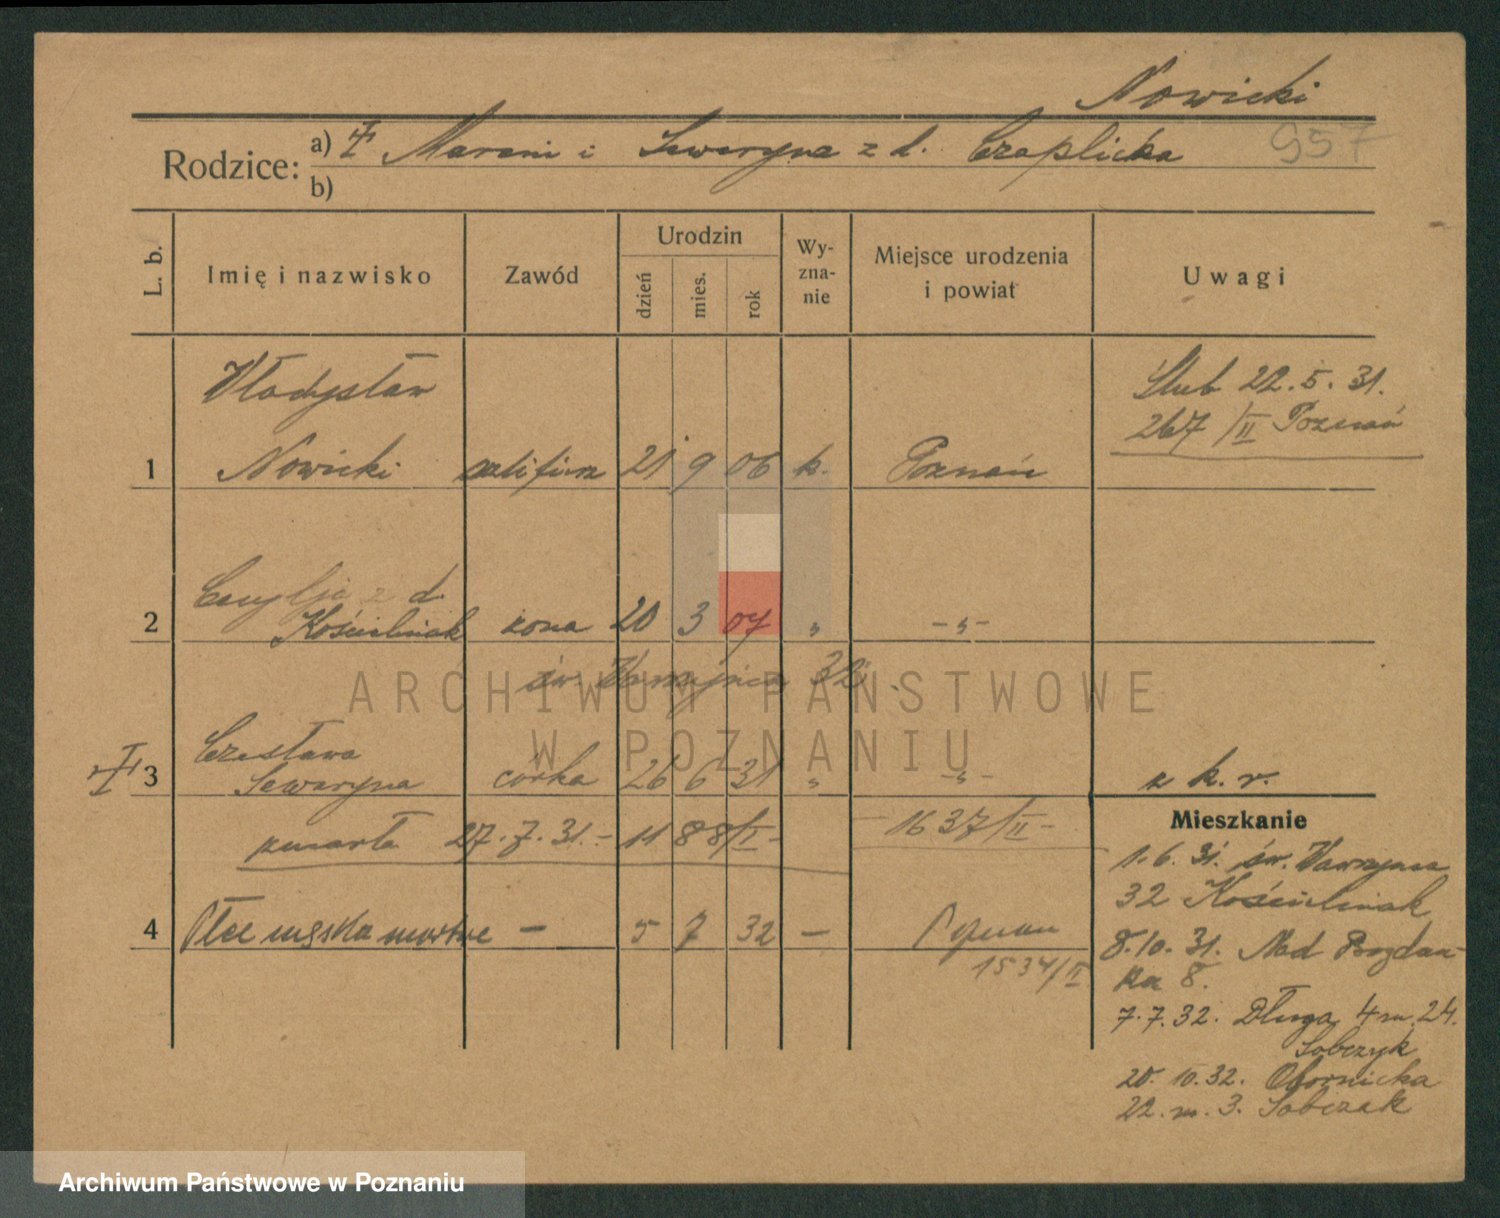 Nowicki
957
Rodzice: a) Marcin i Seweryna z d. Czaplicka
b)
L. b. Imię i nazwisko Zawód Urodzin dzień mies. rok Wy-zna-nie Miejsce urodzenia i powiat Uwagi
Władysław
Ślub 22.5.31.
267/II Poznań
1 Nowicki szlifierz 21 9 06 k. Poznań
Cecylja z d.
2 Kościelniak żona 20 3 07 „ -„-
św. Wawrzyńca 32
ARCHIWUM PAŃSTWOWE
W POZNANIU
Czesława
3 Seweryna córka 26 6 31 „ -„- z k. r.
zmarła 27.7.31.- 1637/II-
4 Płec męska martwe - 5 7 32 - Poznań
1534/II
Mieszkanie
1.6.31. św. Wawrzyńca
32 Kościelniak
8.10.31. Nad Bogdan-
ka 8.
7.7.32. Długa 4 m. 24.
Sobczyk
20. 10. 32. Obornicka
22. m. 3. Sobczak
Archiwum Państwowe w Poznaniu